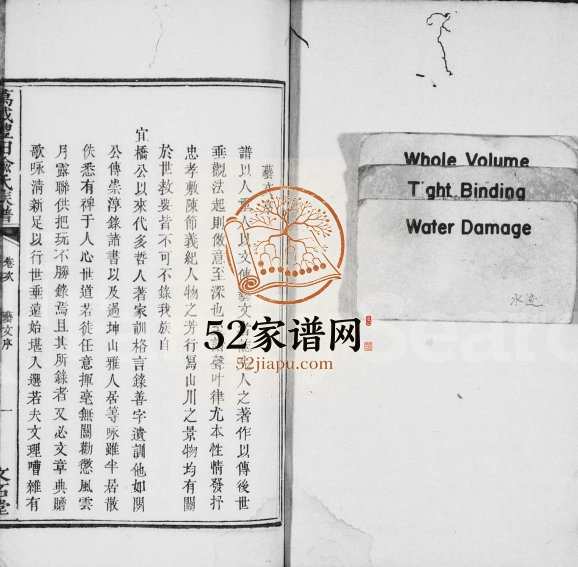 藝
譜以人 以文傳藝文 人之著作以傳後世
垂觀法起則傚意至深也 聲叶律尤本性情發抒
忠孝敷陳節義紀人物之芳行寫山川之景物均有關
於世教要皆不可不錄我族自
宜橋公以來代多哲人著家訓格言錄善字遺訓他如關
公傳崇淳錄諸書以及過坤山雅人居等咏雖半居散
佚悉有裨于人心世道若徒任意揮毫無關勸懲風雲
月露聯供把玩不勝錄焉且其所錄者又必文章典贍
歌咏清新足以行世垂遠始堪人選若夫文理嘈雜有
萬載豐田 氏族譜
卷 藝文序 一
文 堂
Whole Volume
Tight Binding
Water Damage
水迹
52家谱网
52jiapu.com